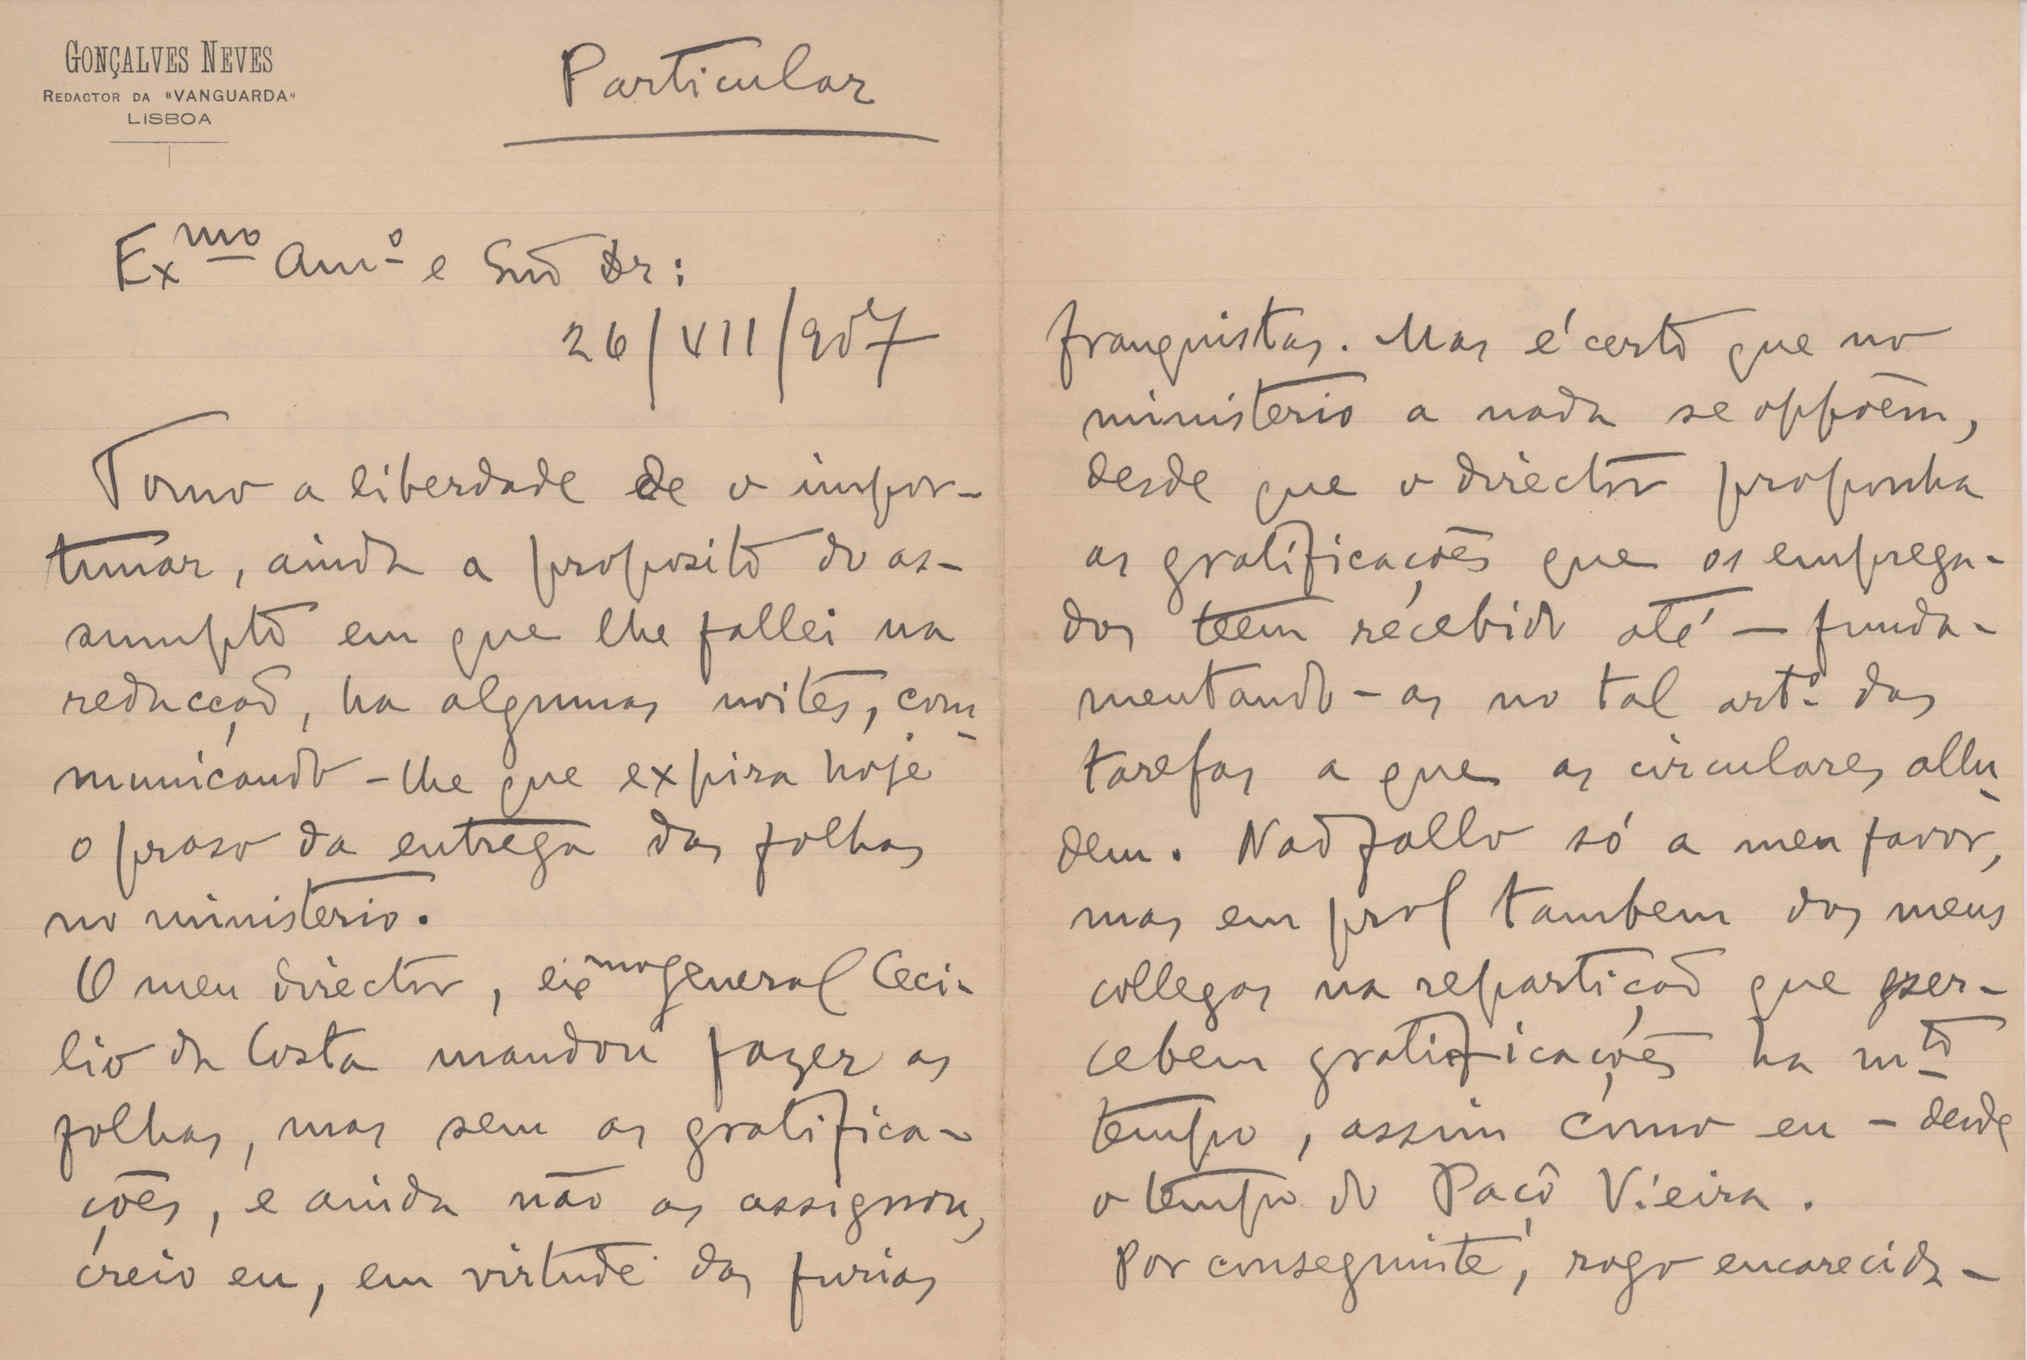 GONÇALVES NEVES
REDACTOR DA "VANGUARDA"
LISBOA
Particular
Exmo Amo e Snõ Dr:
26/VII/907
Tomo a liberdade de o impor-
tunar, ainda a proposito do as-
sumpto em que lhe fallei na
redacção, ha algumas noites, com-
municando-lhe que expira hoje
o praso da entrega das folhas
no ministerio.
O meu director, exmo general Ceci-
lio da Costa mandou fazer as
folhas, mas sem as gratifica-
ções, e ainda não as assignou,
creio eu, em virtude das furias
franquistas. Mas é certo que no
ministerio a nada se oppõem,
desde que o director proponha
as gratificações que os emprega-
dos teem recebido até - funda-
mentando-as no tal arto das
tarefas a que as circulares allu-
dem. Não fallo só a meu favor,
mas em prol tambem dos meus
collegas na repartição que per-
cebem gratificações ha mto
tempo, assim como eu - desde
o tempo do Paçô Vieira.
Por conseguinte, rogo encarecida-